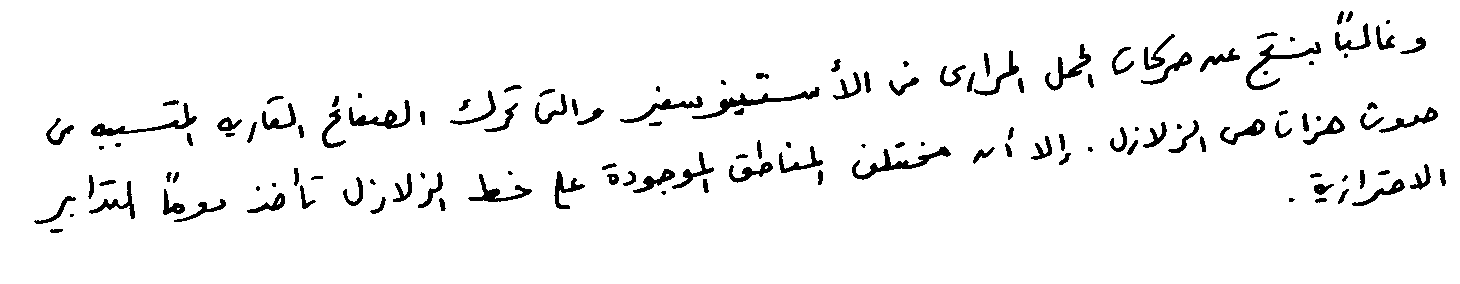 وغالبًا ينتج عن حركات الحمل الحرارى فى الأستينوسفير والتى تحرك الصفائح القاريه المتسببه فى
حدوث هزات هى الزلازل. إلا أن مختلف المناطق الموجودة على خط الزلازل تأخذ دومًا التدابير
الاحترازية.